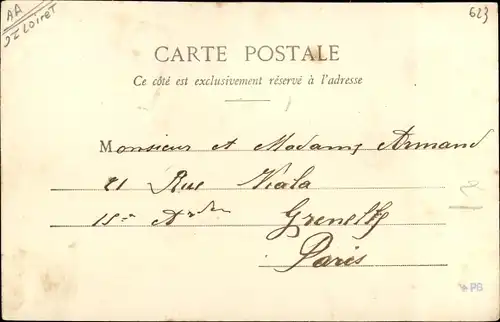 AA
LOIRET
623
CARTE POSTALE
Ce côté est exclusivement réservé à l'adresse
Monsieur et Madame Armand
21 Rue Viala
15e Ardm Grenelle
Paris
PB